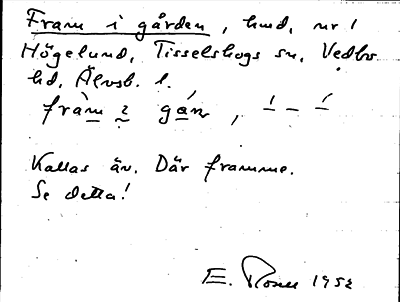 Fram i gården, hmd, nr 1
Högelund, Tisselskogs sn, Vedbo
hd, Älvsb. l.
fràm 2 gán,
Kallas äv. Där framme.
Se detta!
E. 1952